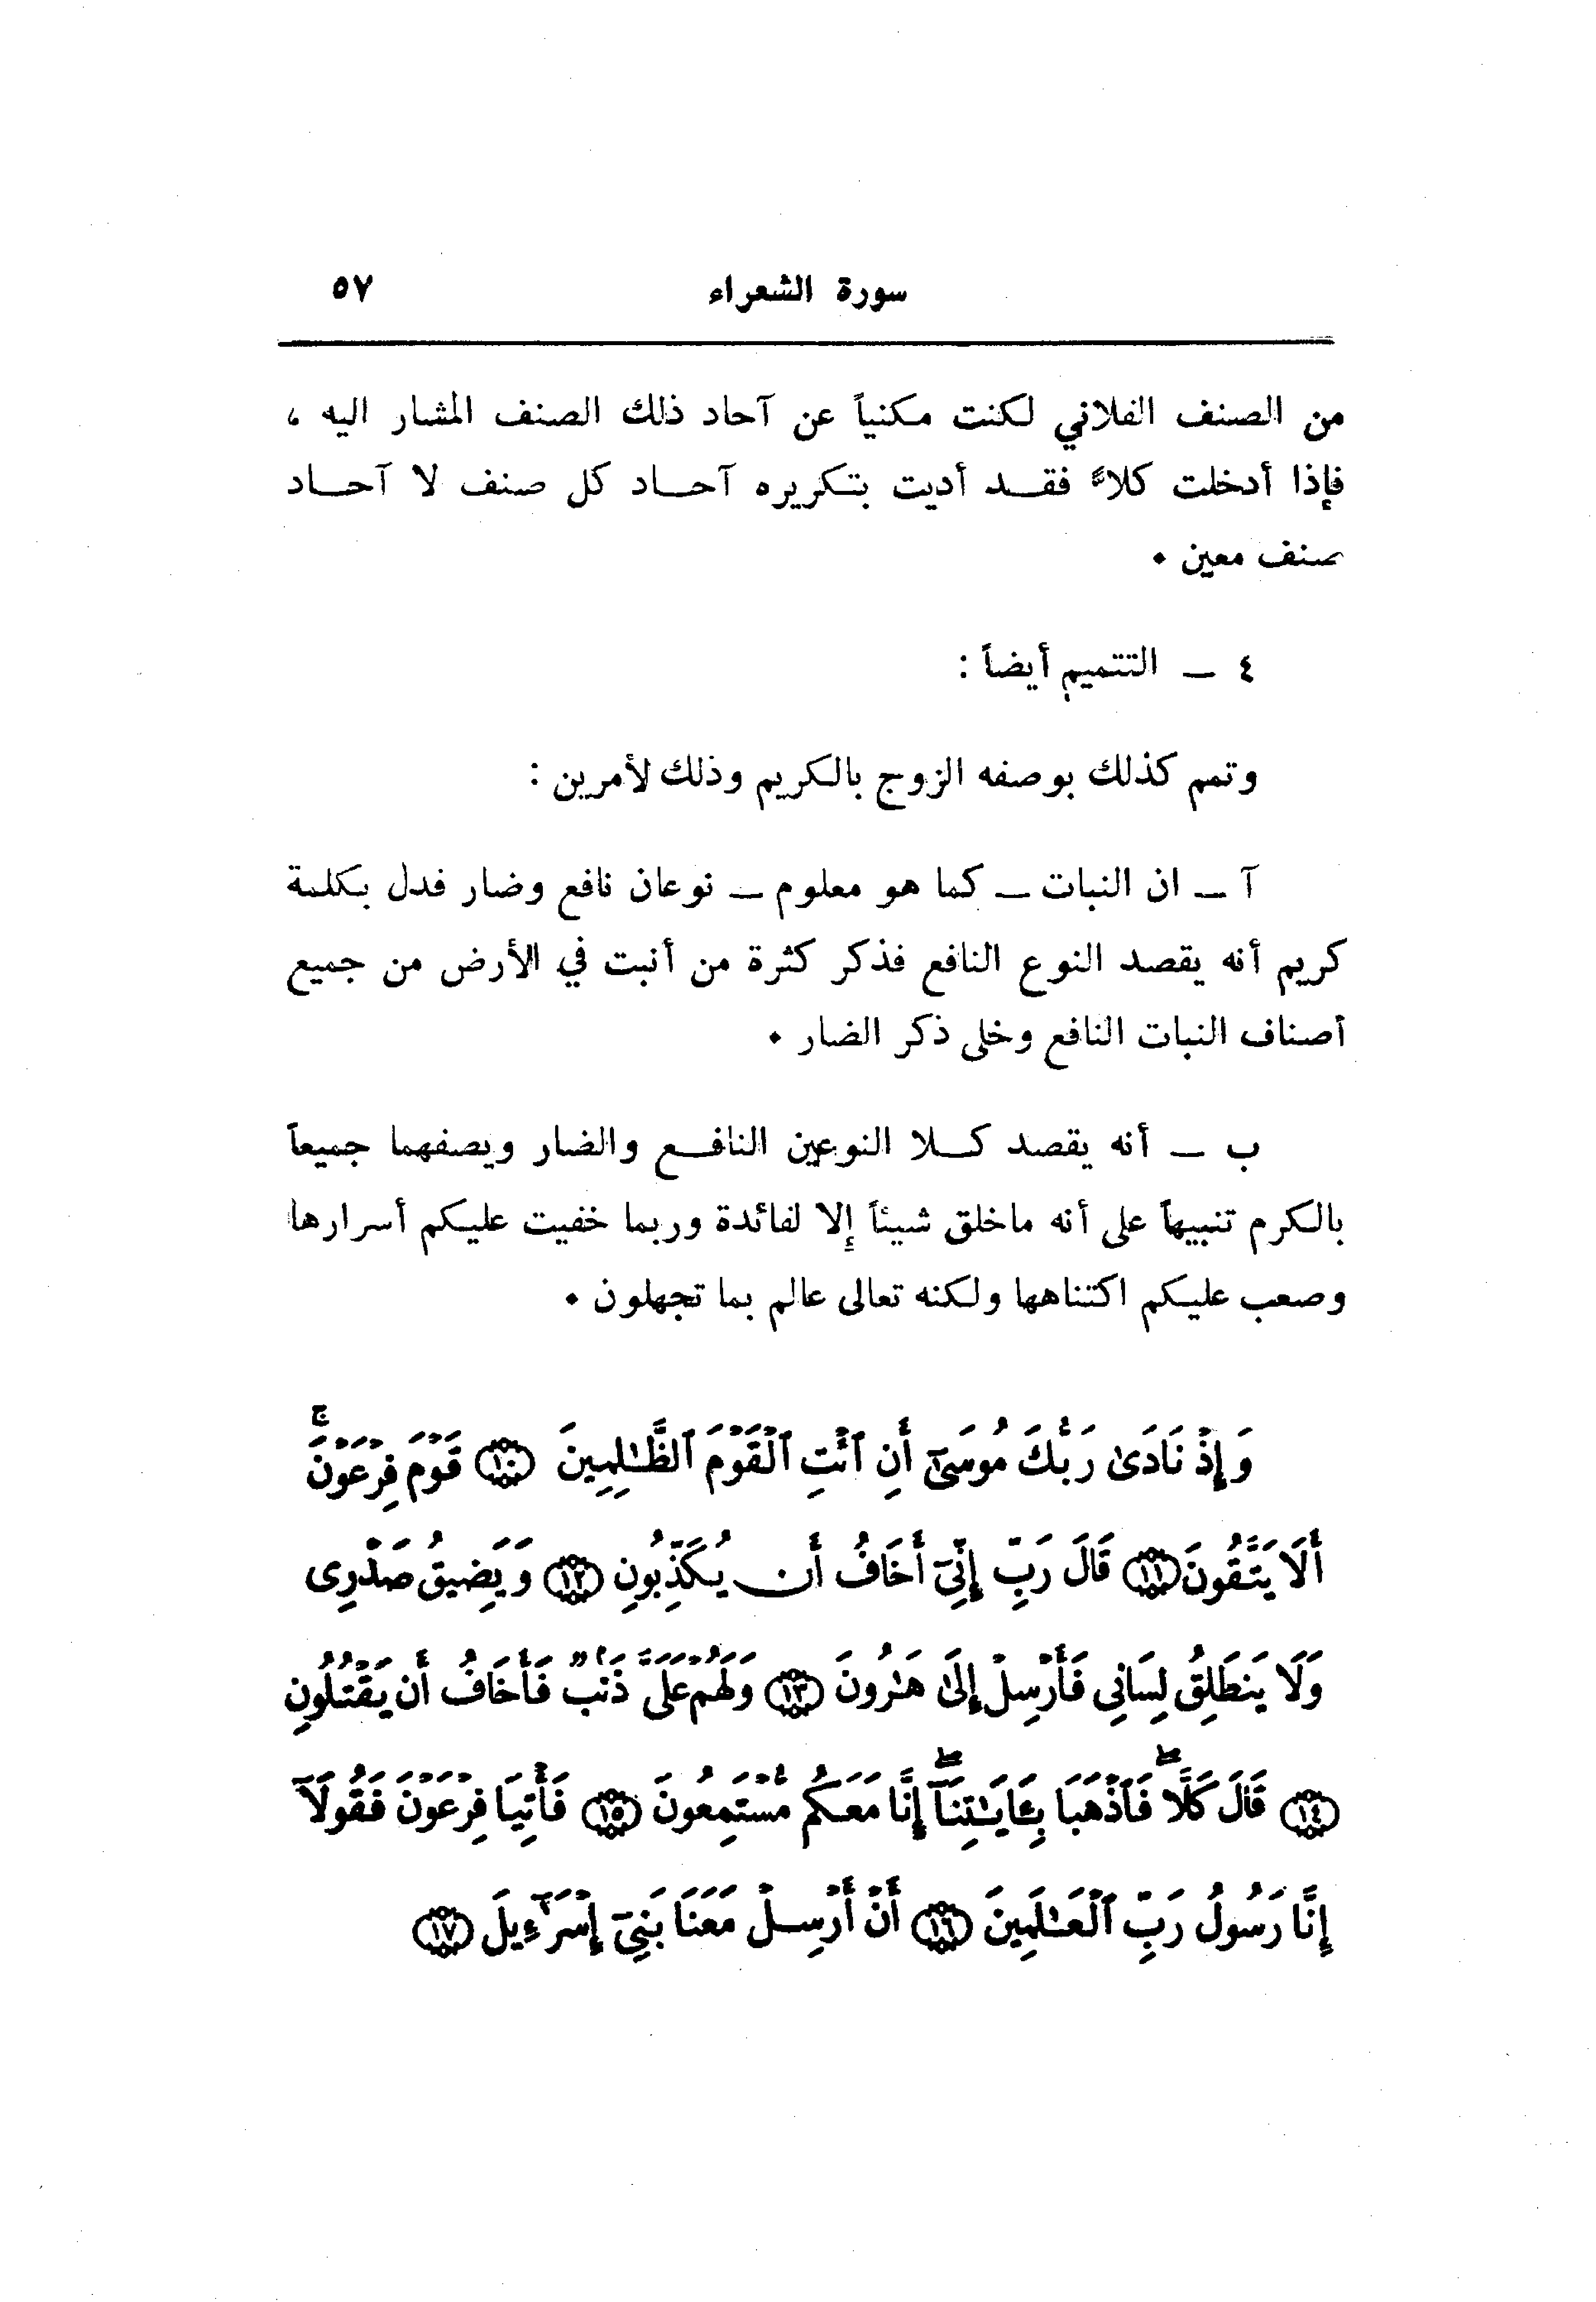 سورة الشعراء ٥٧
من الصنف الفلاني لكنت مكنياً عن آحاد ذلك الصنف المشار اليه ،
فإذا أدخلت كلاً فقد أديت بتكريره آحاد كل صنف لا آحاد
صنف معين ٠
٤ ـ التتميم أيضاً :
وتمم كذلك بوصفه الزوج بالكريم وذلك لأمرين :
آ ـ ان النبات ـ كما هو معلوم ـ نوعان نافع وضار فدل بكلمة
كريم أنه يقصد النوع النافع فذكر كثرة من أنبت في الأرض من جميع
أصناف النبات النافع وخلى ذكر الضار ٠
ب ـ أنه يقصد كلا النوعين النافع والضار ويصفهما جميعاً
بالكرم تنبيهاً على أنه ماخلق شيئاً إلا لفائدة وربما خفيت عليكم أسرارها
وصعب عليكم اكتناهها ولكنه تعالى عالم بما تجهلون ٠
وَإِذْ نَادَىٰ رَبُّكَ مُوسَىٰٓ أَنِ ٱئْتِ ٱلْقَوْمَ ٱلظَّـٰلِمِينَ ﴿١٠﴾ قَوْمَ فِرْعَوْنَۚ
أَلَا يَتَّقُونَ ﴿١١﴾ قَالَ رَبِّ إِنِّىٓ أَخَافُ أَن يُكَذِّبُونِ ﴿١٢﴾ وَيَضِيقُ صَدْرِى
وَلَا يَنطَلِقُ لِسَانِى فَأَرْسِلْ إِلَىٰ هَـٰرُونَ ﴿١٣﴾ وَلَهُمْ عَلَىَّ ذَنۢبٌ فَأَخَافُ أَن يَقْتُلُونِ
﴿١٤﴾ قَالَ كَلَّاۖ فَٱذْهَبَا بِـَٔايَـٰتِنَآۖ إِنَّا مَعَكُم مُّسْتَمِعُونَ ﴿١٥﴾ فَأْتِيَا فِرْعَوْنَ فَقُولَآ
إِنَّا رَسُولُ رَبِّ ٱلْعَـٰلَمِينَ ﴿١٦﴾ أَنْ أَرْسِلْ مَعَنَا بَنِىٓ إِسْرَٰٓءِيلَ ﴿١٧﴾